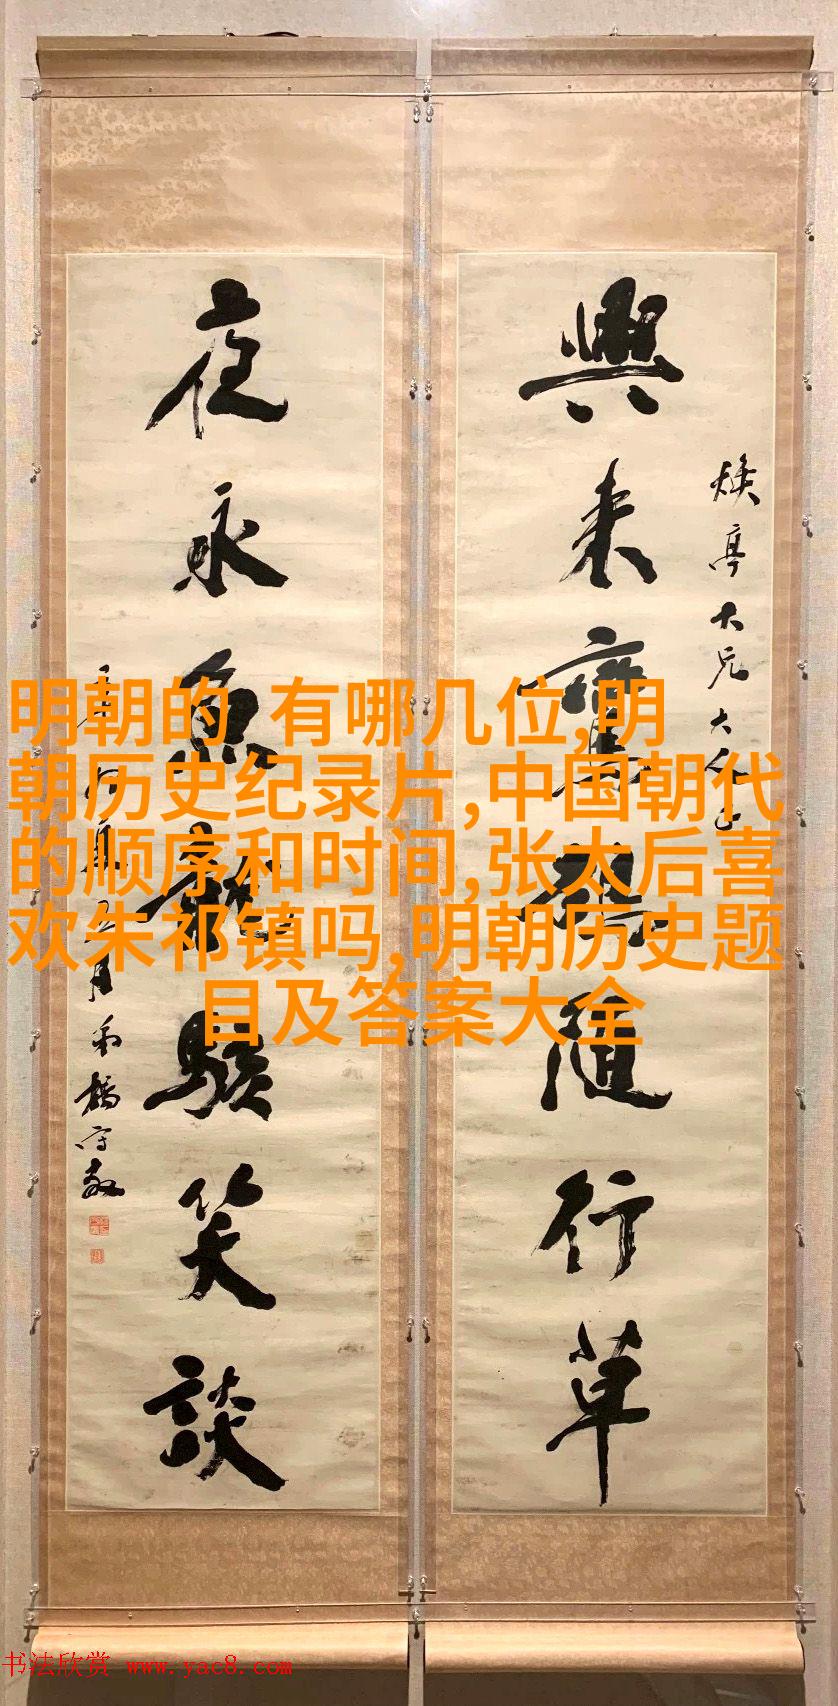 明朝的 有哪几位,明
朝历史纪录片,中国朝代
的顺序和时间,张太后喜
欢朱祁镇吗,明朝历史题
目及答案大全
煥亭大兄大人正
興來鸞鶴隨行草
夜永魚龍駭笑談
楊守敬
书法欣赏 www.yac8.com